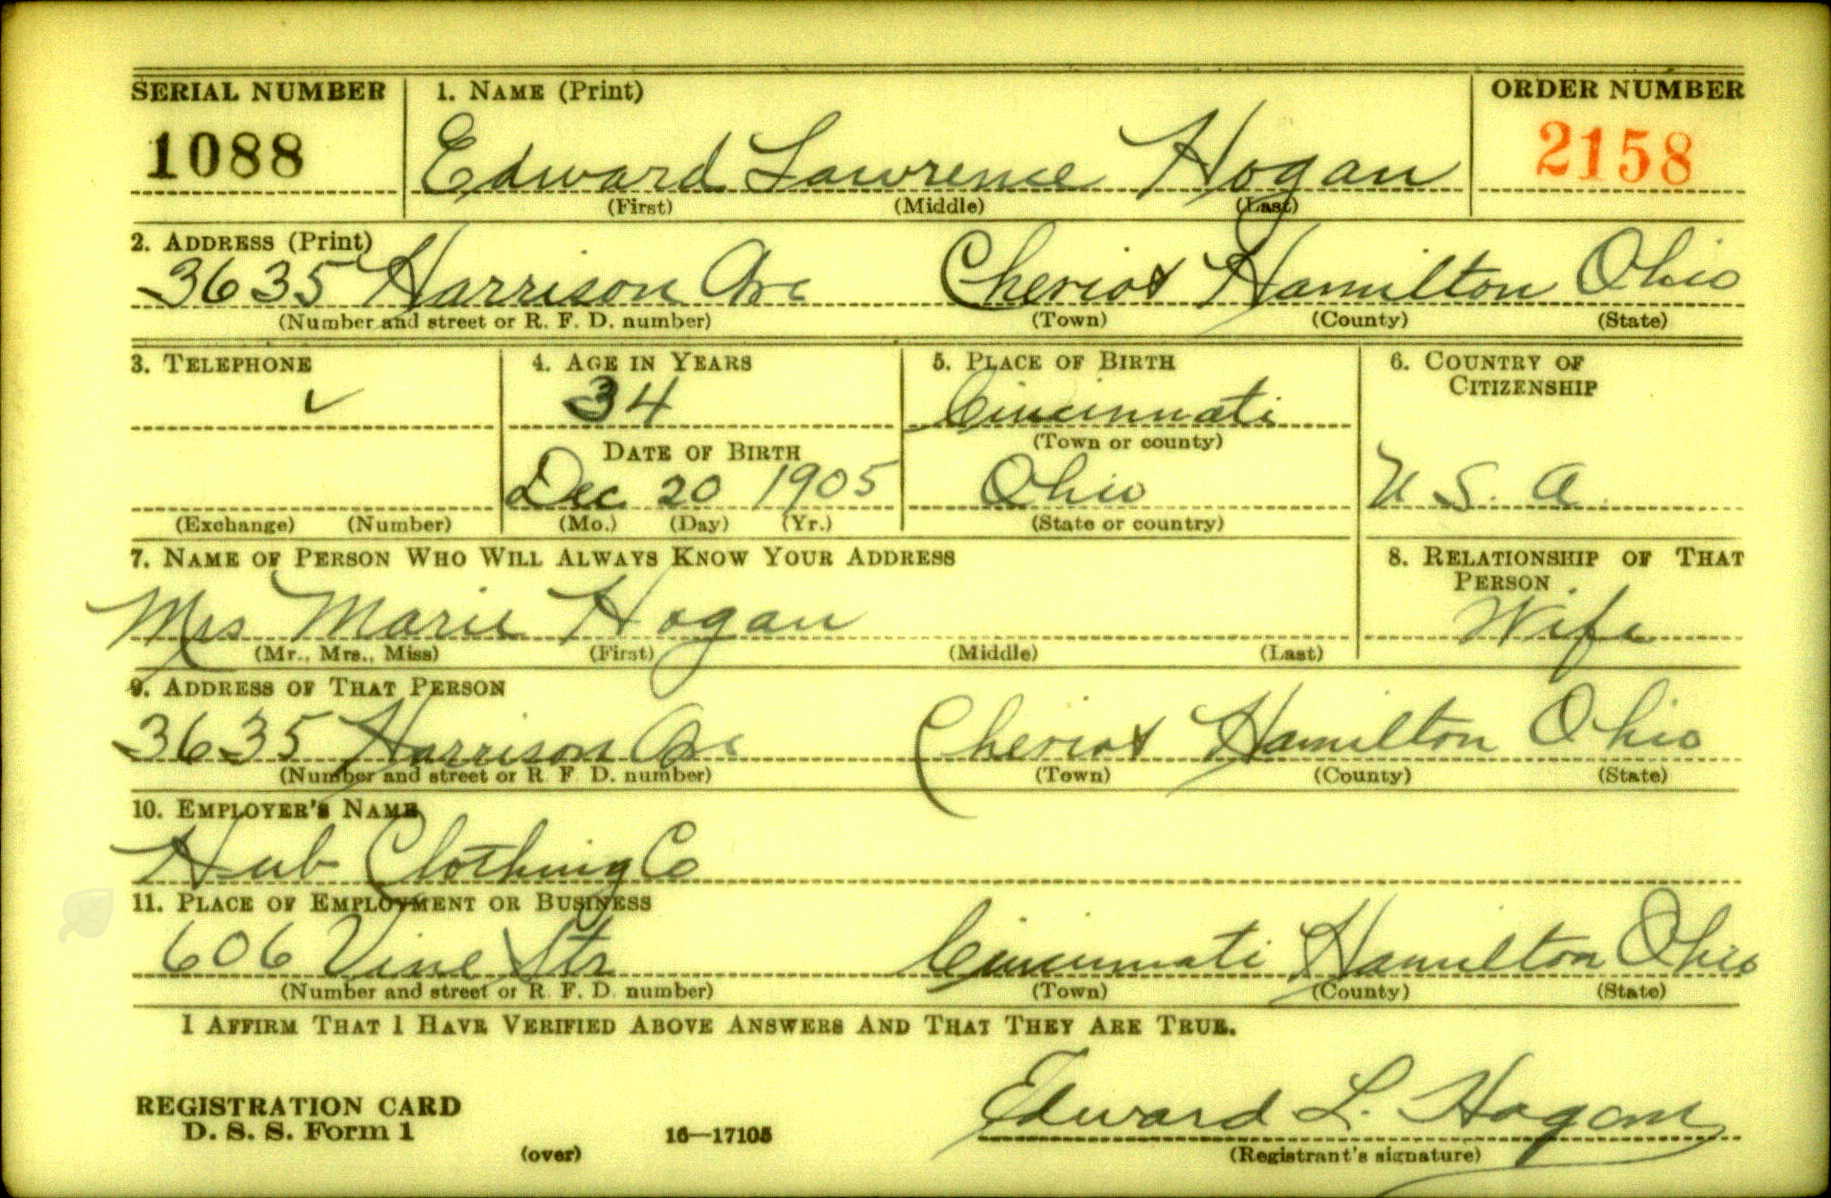 SERIAL NUMBER 1. NAME (Print) ORDER NUMBER
1088 Edward Lawrence Hogan 2158
(First) (Middle) (Last)
2. ADDRESS (Print)
3635 Harrison Ave Cheviot Hamilton Ohio
(Number and street or R. F. D. number) (Town) (County) (State)
3. TELEPHONE 4. AGE IN YEARS 5. PLACE OF BIRTH 6. COUNTRY OF
CITIZENSHIP
34 Cincinnati
(Town or county)
DATE OF BIRTH
Dec 20 1905 Ohio U. S. A.
(Exchange) (Number) (Mo.) (Day) (Yr.) (State or country)
7. NAME OF PERSON WHO WILL ALWAYS KNOW YOUR ADDRESS 8. RELATIONSHIP OF THAT
PERSON
Mrs Marie Hogan Wife
(Mr., Mrs., Miss) (First) (Middle) (Last)
9. ADDRESS OF THAT PERSON
3635 Harrison Ave Cheviot Hamilton Ohio
(Number and street or R. F. D. number) (Town) (County) (State)
10. EMPLOYER'S NAME
Hub Clothing Co
11. PLACE OF EMPLOYMENT OR BUSINESS
606 Vine Str Cincinnati Hamilton Ohio
(Number and street or R. F. D. number) (Town) (County) (State)
I AFFIRM THAT I HAVE VERIFIED ABOVE ANSWERS AND THAT THEY ARE TRUE.
Edward L. Hogan
REGISTRATION CARD
D. S. S. Form 1 16—17105
(over) (Registrant's signature)